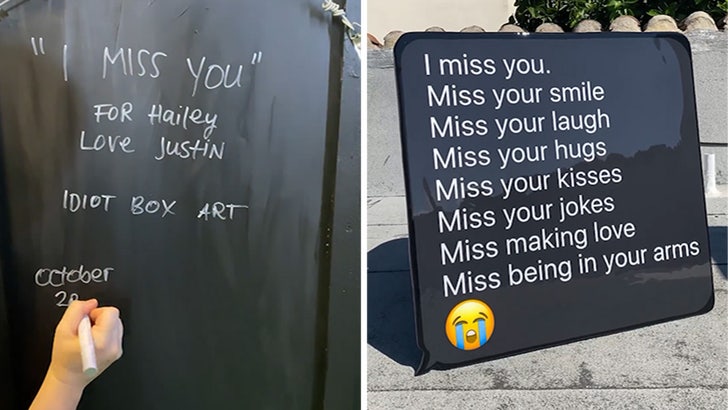 "I MISS YOU"
FOR Hailey
Love JUSTIN
IDIOT BOX ART
October
I miss you.
Miss your smile
Miss your laugh
Miss your hugs
Miss your kisses
Miss your jokes
Miss making love
Miss being in your arms
😭